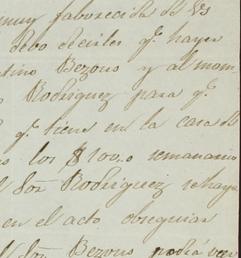 muy faborecida de Vs
debo decirles qe. hayer
tino Bezous y al mom
Rodriguez para qe.
qe. tiene en la casa de
los $100.0 semanario
Sor. Rodriguez se haya
en el acto obsequiar
Sor. Bezous podrá ver